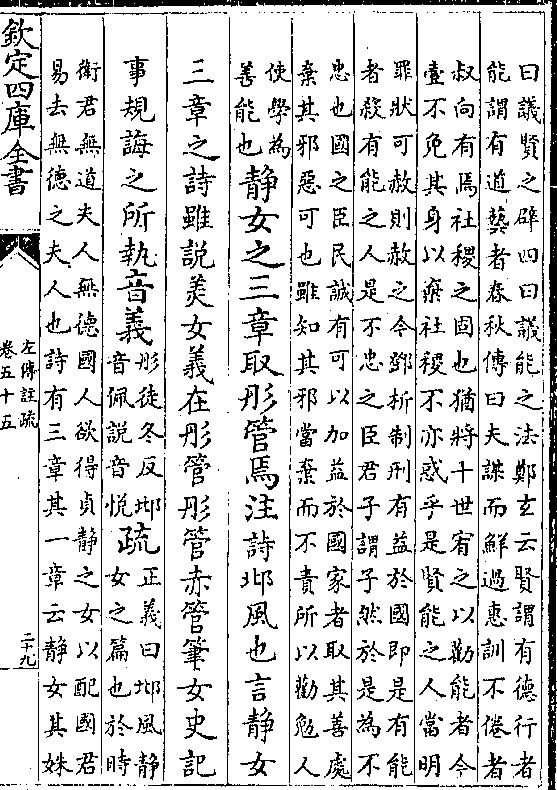 曰議賢之辟四曰議能之法鄭玄云賢謂有德行者
能謂有道藝者春秋傳曰夫謀而鮮過惠訓不倦者
叔向有焉社稷之固也猶將十世宥之以勸能者今
壹不免其身以棄社稷不亦惑乎是賢能之人當明
罪狀可赦則赦之今鄧析制刑有益於國即是有能
者殺有能之人是不忠之臣君子謂子然於是為不
忠也國之臣民誠有可以加益於國家者取其善處
棄其邪惡可也雖知其邪當棄而不責所以勸勉人
使學為
善能也
靜女之三章取彤管焉注詩邶風也言靜女
三章之詩雖說美女義在彤管彤管赤管筆女史記
事規誨之所執音義
彤徒冬反邶
音佩說音悅
疏
正義曰邶風靜
女之篇也於時
衛君無道夫人無德國人欲得貞靜之女以配國君
易去無德之夫人也詩有三章其一章云靜女其姝
欽定四庫全書
左傳註疏
卷五十五
二十九